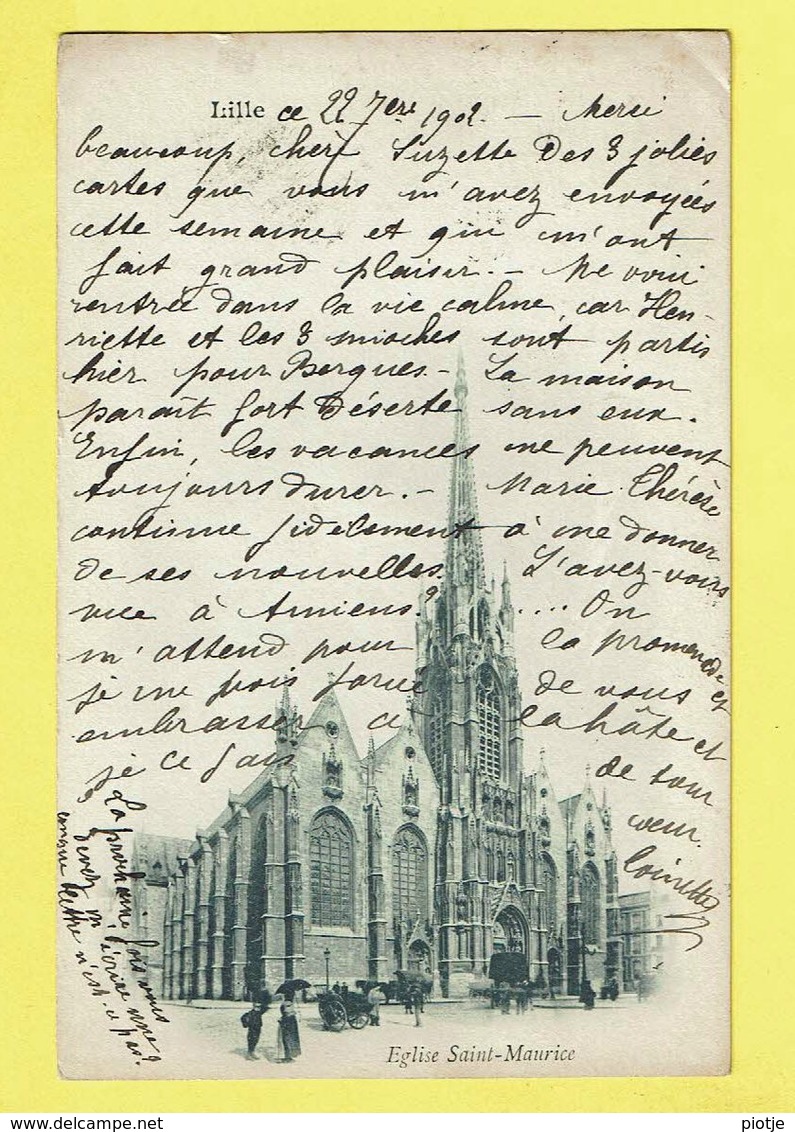 Lille ce 22 7ere 1902. — Merci
beaucoup, chère Suzette des 3 jolies
cartes que vous m'avez envoyées
cette semaine et qui m'ont
fait grand plaisir. — Me voici
rentrée dans la vie calme, car Hen-
riette et les 3 mioches sont partis
hier pour Bergues — La maison
paraît fort déserte sans eux.
Enfin, les vacances ne peuvent
toujours durer. — Marie Thérèse
continue fidèlement à me donner
de ses nouvelles. L'avez-vous
vue à Amiens? .... On
m'attend pour la promenade et
je me vois forcée de vous
embrasser à la hâte et
je le fais de tout
cœur.
La prochaine fois vous
devez m'écrire une
longue lettre n'est-ce pas?
Eglise Saint-Maurice
www.delcampe.net
piotje